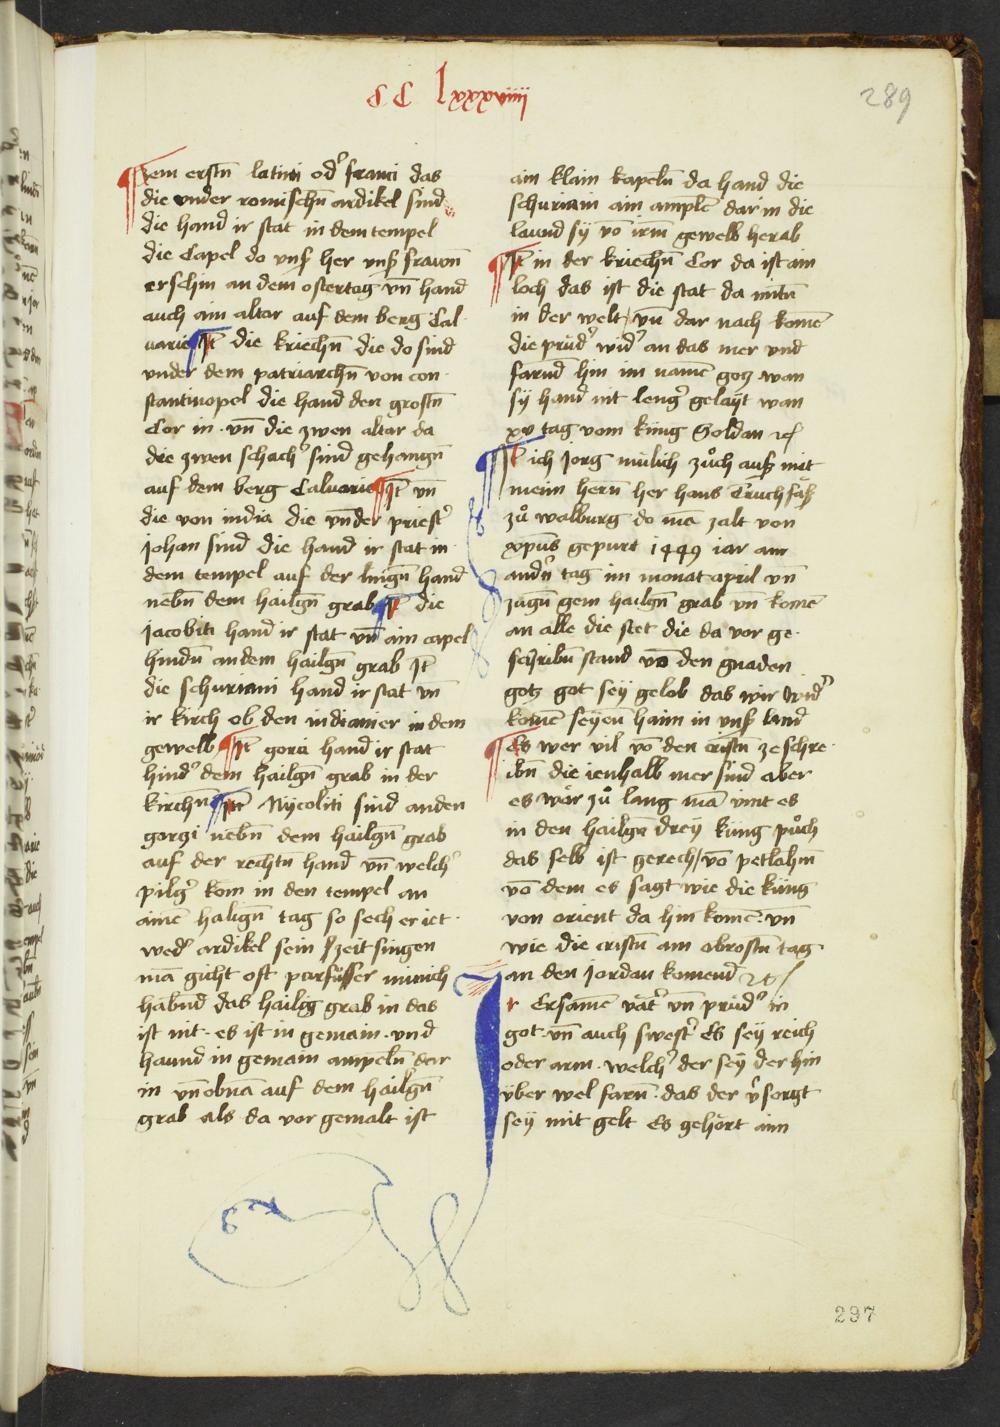 CC lxxxviiii
289
Zem erstn̄ latini od' franci das
die vnder romischn̄ ardikel sind
die hand ir stat in dem tempel
die Capel do vnß her vnß frawn̄
erschin an dem ostertag vn̄ hand
auch ain altar auf dem berg Cal-
uarie Jt̄ die kriechn̄ die do sind
vnder dem patriarchn̄ von con-
stantinopel die hand den grostn̄
Cor in · vn̄ die zwen altar da
die zwen schach' sind gehangn̄
auf dem berg Caluarie Jt̄ vn̄
die von india die vnder priest'
johan sind die hand ir stat in
dem tempel auf der lingn̄ hand
nebn̄ dem hailgn̄ grab Jt̄ die
jacobiti hand ir stat vn̄ ain capel
hindn̄ an dem hailgn̄ grab Jt̄
die schuriani hand ir stat vn̄
ir kirch ob den indianier in dem
gewelb Jt̄ gorci hand ir stat
hind' dem hailgn̄ grab in der
kirchn̄ Jt̄ Nycoliti sind an den
gorgi nebn̄ dem hailgn̄ grab
auf der rechtn hand vn̄ welch'
pilg' kom in den tempel an
aime halign̄ tag so sech er iet-
wed' ardikel sein zeit singen
mā gicht oft parfüsser münich
habnd das hailig grab in das
ist nit · es ist in gemain · vnd
haund in gemain ampeln̄ dar
in vn̄ obnā auf dem hailgn̄
grab als da vor gemalt ist
ain klain kapeln̄ da hand die
schuriani ain ample dar in die
laund sy vō irm gewelb herab
Jt̄ in der kriechn̄ Cor da ist ain
loch das ist die stat da mitn̄
in der welt / vn̄ dar nach komē
die prüd' wid' an das mer vnd
farnd hin im namē gotz wan
sy hand nit leng' gelayt wan
xv tag vom küng Soldan ꝛc
Jt̄ ich jorg mülich zůch auß mit
meim hern̄ her hans Truchsäß
zů walburg do mā zalt von
xpūs gepurt 1449 iar am
andn̄ tag im monat april vn̄
zugn̄ gem hailgn̄ grab vn̄ komē
an alle die stet die da vor ge-
schribn̄ stand vō den gnaden
gotz got sey gelob das wir wid'
komē seyen haim in vnß land
Es wer vil vō den cristn̄ ze schre-
ibn̄ die ienhalb mer sind aber
es wär zů lang mā vint es
in den hailgn̄ drey küng půch
das selb ist gerech / vō petlahm̄
vō dem es sagt wie die küng
von orient da hin komē · vn̄
wie die cristn̄ am obrostn̄ tag
an den jordan komend ꝛc
Jr Ersamē vät' vn̄ prüd' in
got · vn̄ auch swest' Es sey reich
oder arm · welch' der sey der hin
über wel farn̄ · das der v'sorgt
sey mit gelt Es gehört aim
297